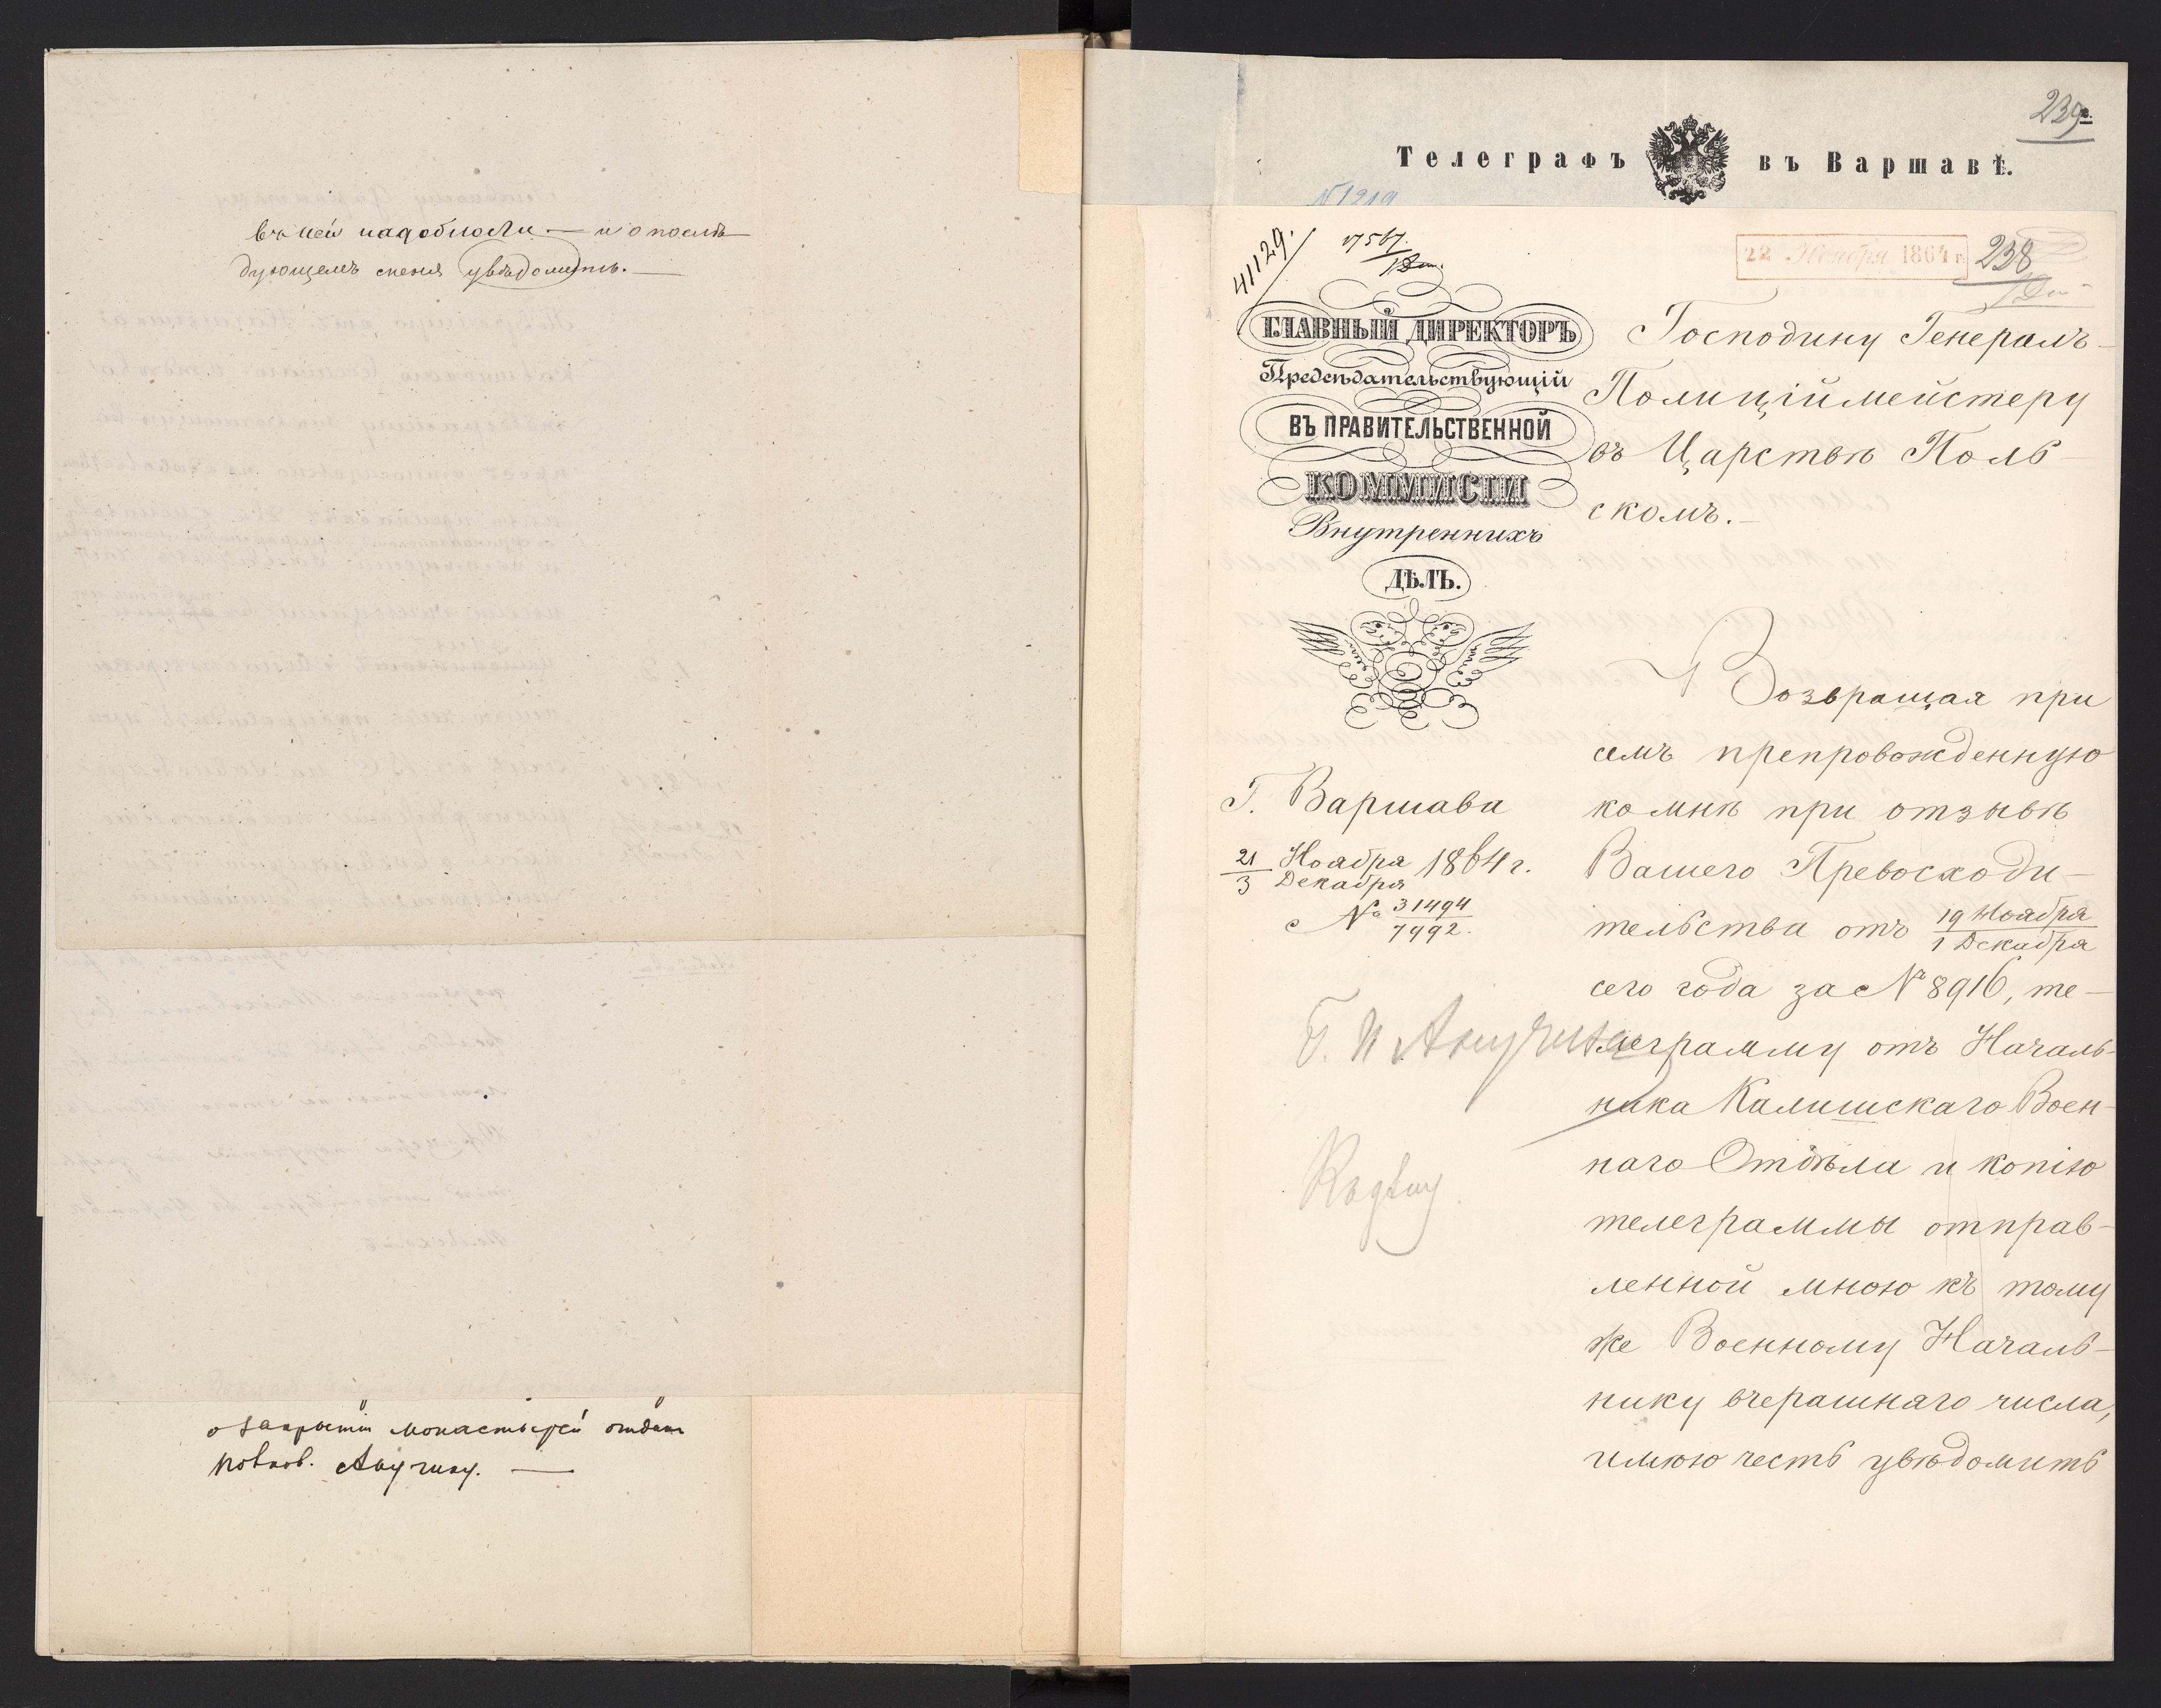 въ ней надобности — и о послѣ
дующемъ меня увѣдомить. —
о закрытіи монастырей отдан
Анучину. —
239
Телеграфъ въ Варшавѣ.
N 1219
41129.
17567.
22 Ноября 1864 г.
238
ГЛАВНЫЙ ДИРЕКТОРЪ
Предсѣдательствующій
ВЪ ПРАВИТЕЛЬСТВЕННОЙ
КОММИСІИ
Внутреннихъ
ДѢЛЪ.
Г. Варшава
21/3 Ноября/Декабря 1864 г.
№ 31494/7992.
Г. П. Анучину
Господину Генералъ-
Полиціймейстеру
въ Царствѣ Поль-
скомъ. —
Возвращая при
семъ препровожденную
ко мнѣ при отзывѣ
Вашего Превосходи-
тельства отъ 19 Ноября/1 Декабря
сего года за № 8916, те-
леграмму отъ Началь-
ника Калишскаго Воен-
наго Отдѣла и копію
телеграммы отправ-
ленной мною къ тому
же Военному Началь-
нику вчерашняго числа,
имѣю честь увѣдомить